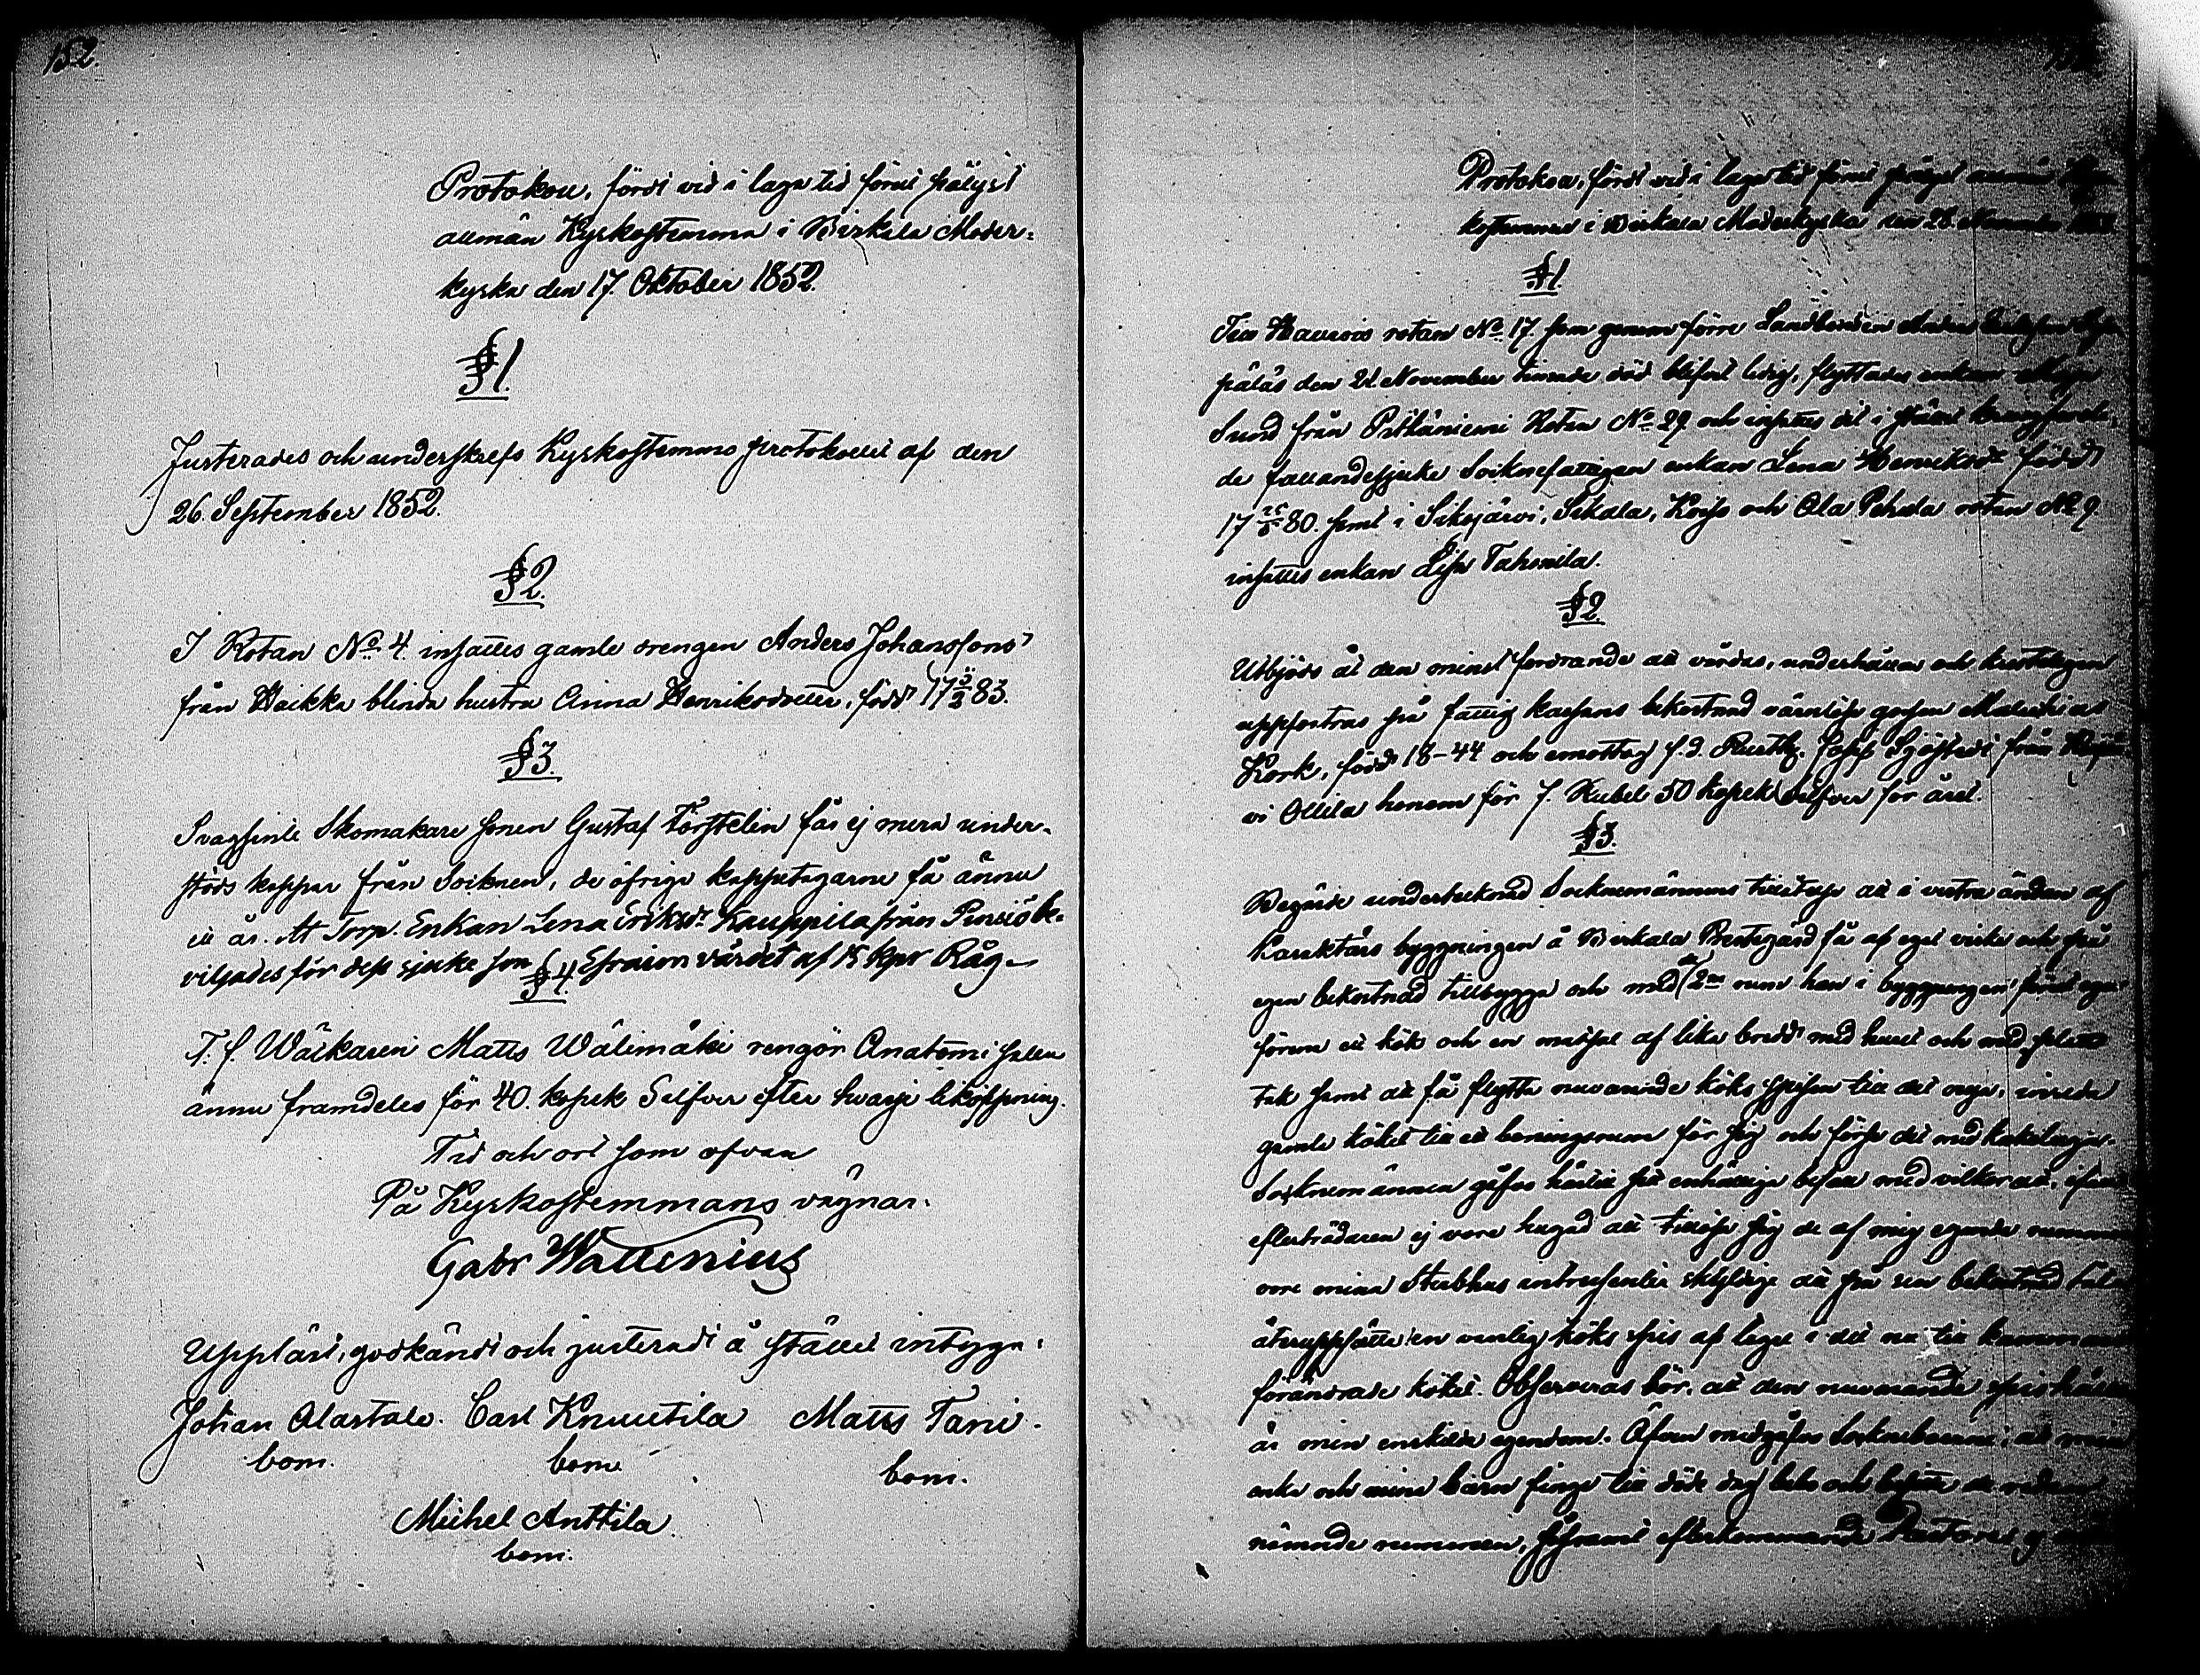 152.
Protokoll, fördt vid i laga tid förut pålyst
allmän Kyrkostemma i Birkala Moder-
kyrka den 17. Oktober 1852.
§1.
Justerades och underskrefs Kyrkostemmo protokollet af den
26. September 1852.
§2.
I Rotan No 4. insattes gamle drengen Anders Johanssons
från Haikka blinda hustru Anna Henriksdotter, född 17 3/2 83.
§3.
Svagsinte Skomakare sonen Gustaf Törstelin får ej mera under-
stöds kappar från Socknen, de öfrige kapptagarne få ännu
ett år. At Torp. Enkan Lena Eriksdr Kauppila från Pinsiö be-
viljades för dess sjuke son Efraim värdet af 15 kpr Råg.
§4.
T. f. Wäckaren Matts Wälimäki rengör Anatomi salen
ännu framdeles för 40. kopek Silfver efter hvarje liköppning.
Tid och ort som ofvan
På Kyrkostemmans vägnar:
Gabr Wallenius
Uppläst, godkändt och justeradt å stället intyga:
Johan Alastalo. Carl Knuutila Matts Tani.
bom. bom. bom.
Michel Anttila
bom.
Protokoll, fördt vid i laga tid förut pålyst allmän
kostemma i Birkala Moderkyrka den 28. November
§1.
Till rotan No 17 som genom förre Landbonden Anders
den 21 November timade död blifvit ledig, flyttades enkan Maja
Sund från Pitkäniemi Rotan No 29 och insattes dit i stället
de fallandesjuke Socknefattigan enkan Lena Henriksdr född
17 80. samt i Sikojärvi, Sikala, Koiso och Ala Pehula rotan No 9
insattes enkan Lisa Tahmila.
§2.
Utbjöds åt den minst fordrande att vårdas, underhållas och kristeligen
uppfostras på fattig kassans bekostnad värnlöse gossen Malakias
Kork, född 18-44 och emottog f.d. Rusth. Josef Sjöstedt från
vi Ollila honom för 7. Rubel 50 kopek Silfver för året.
§3.
Begärde undertecknad Socknemännens tillåtelse att i vestra ändan af
Karaktärs byggningen å Birkala Prestegård få af eget virke och på
egen bekostnad tillbygga och med de 2ne rum han i byggningen förut eger
förena ett kök och en matsal af lika bredd med huset och med
tak samt att få flytta nuvarande köks spisen till det nya, inreda
gamla köket till ett boningsrum för sig och förse det med kakelugn.
Socknemännen gåfvo härtill sitt enhälliga bifall med vilkor att, ifall
efterträdaren ej vore hugad att tillösa sig de af mig egande rummen
vore mina Sterbhus intressenter skyldige att på sin bekostnad
återuppsätta en vanlig köks spis af tegel i det nu till kammare
förändrade köket. Observeras bör, att den nuvarande spishällen
är min enskilda egendom. Äfven medgåfvo Sockneboerne, att min
enka och mina barn finge till död dag bebo och besitta de
nämnde rummen, såframt efterkommande Pastorer, ej